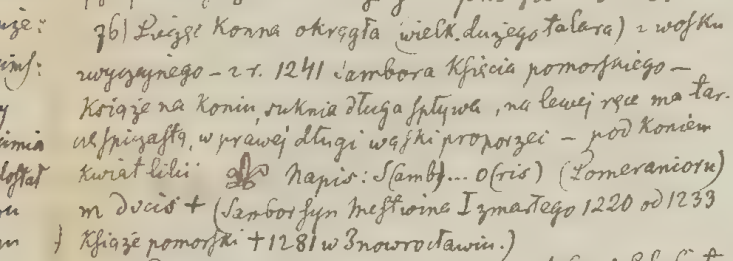 uże:
76) Pieczęć Konna okrągła (wielk. dużego talara) z wosku
zwyczajnego – z r. 1241 Sambora Księcia pomorskiego –
Książe na koniu, suknia długa spływa, na lewej ręce ma tar-
czę śpiczastą, w prawej długi wąski proporzec – pod koniem
kwiat lilii Napis: S(amb)... o(ris) (Pomeranioru)
m Ducis + (Sambor syn Mestwina I zmarłego 1220 od 1233
Książe pomorski + 1281 w Inowrocławiu.)